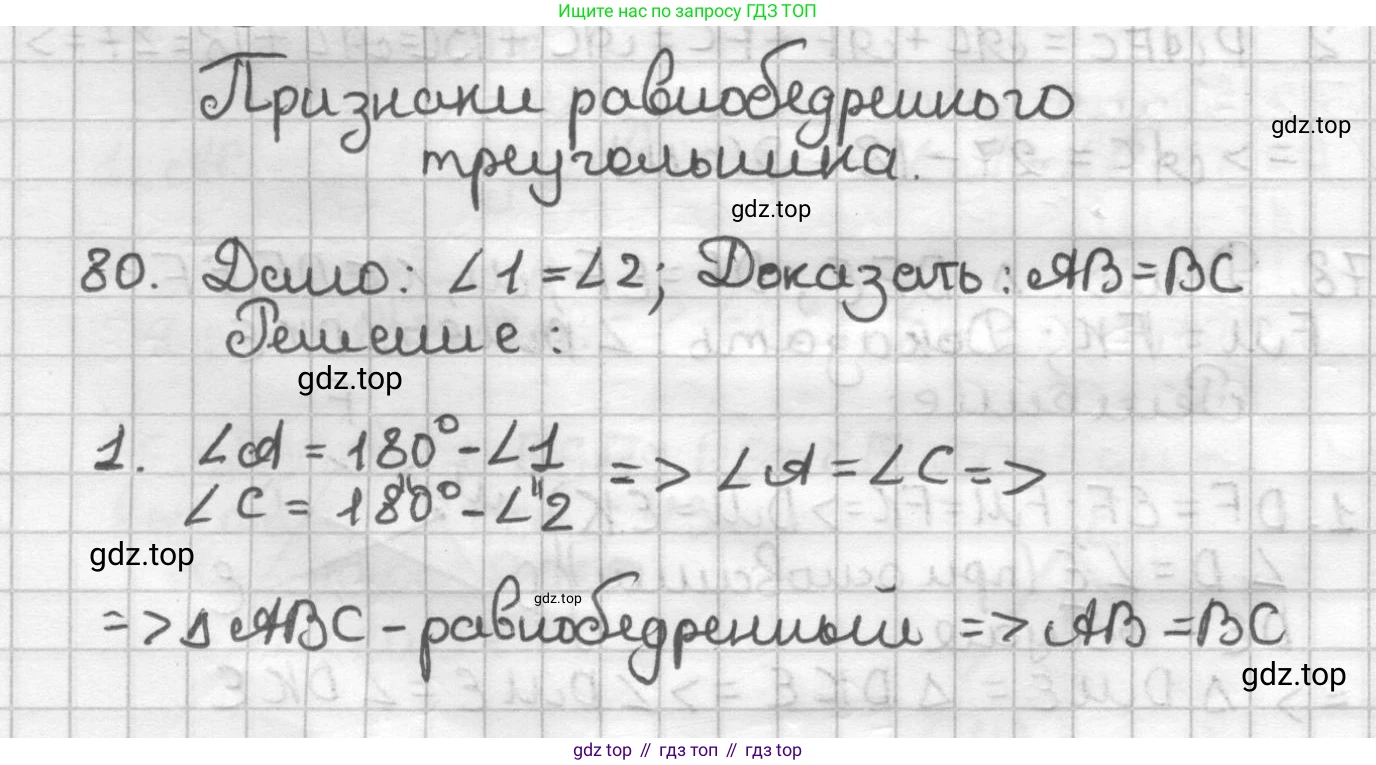 Ищите нас по запросу ГДЗ ТОП
Признаки равнобедренного
gdz.top
треугольника.
gdz.top
80. Дано: ∠1 = ∠2; Доказать: AB = BC
Решение:
gdz.top
1. ∠A = 180° - ∠1
∠C = 180° - ∠2
=> ∠A = ∠C =>
gdz.top
gdz.top
=> Δ ABC - равнобедренный => AB = BC
gdz.top
gdz top // гдз топ // gdz top